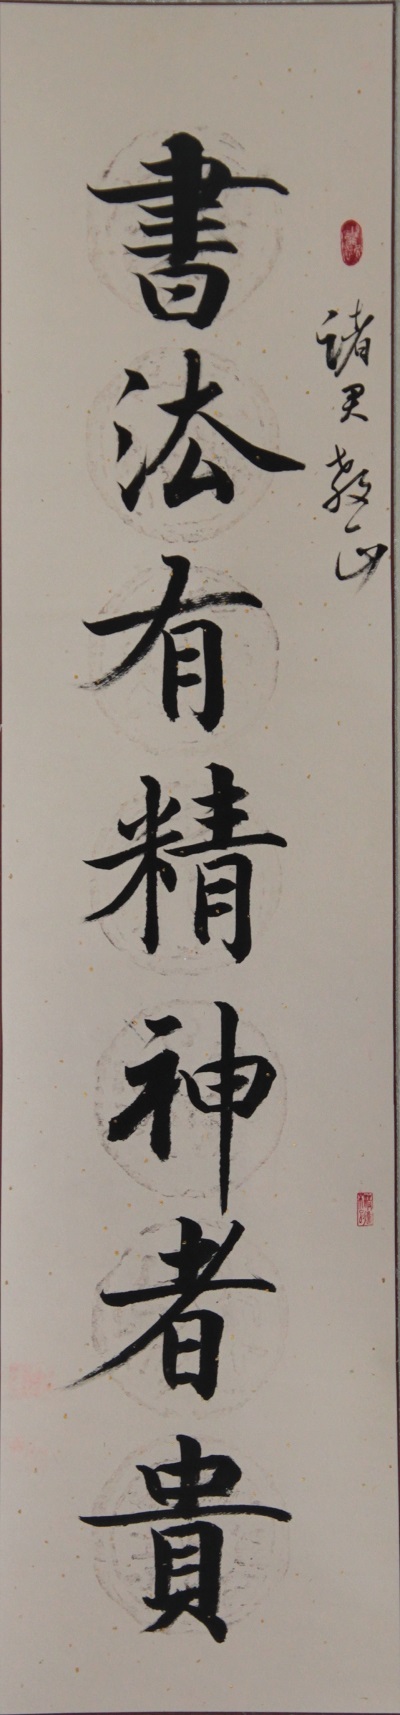 諸君教正
書法有精神者貴